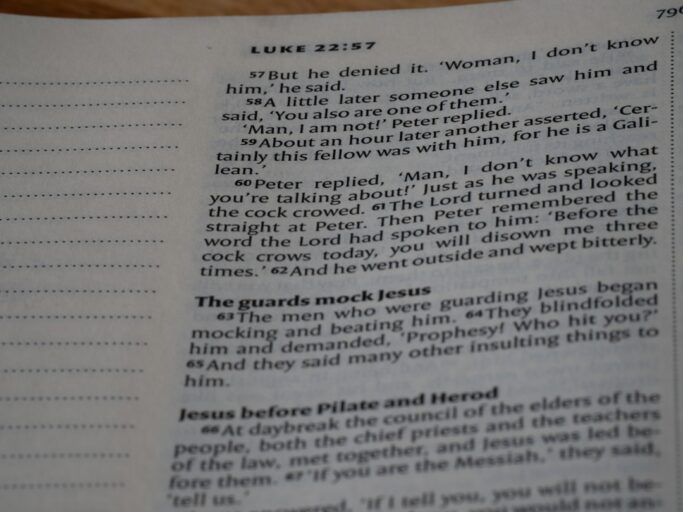 796
LUKE 22:57
57 But he denied it. ‘Woman, I don’t know
him,’ he said.
58 A little later someone else saw him and
said, ‘You also are one of them.’
‘Man, I am not!’ Peter replied.
59 About an hour later another asserted, ‘Cer-
tainly this fellow was with him, for he is a Gali-
lean.’
60 Peter replied, ‘Man, I don’t know what
you’re talking about!’ Just as he was speaking,
the cock crowed. 61 The Lord turned and looked
straight at Peter. Then Peter remembered the
word the Lord had spoken to him: ‘Before the
cock crows today, you will disown me three
times.’ 62 And he went outside and wept bitterly.
The guards mock Jesus
63 The men who were guarding Jesus began
mocking and beating him. 64 They blindfolded
him and demanded, ‘Prophesy! Who hit you?’
65 And they said many other insulting things to
him.
Jesus before Pilate and Herod
66 At daybreak the council of the elders of the
people, both the chief priests and the teachers
of the law, met together, and Jesus was led be-
fore them. 67 ‘If you are the Messiah,’ they said,
‘tell us.’
answered, ‘If I tell you, you will not be-
you would not an-